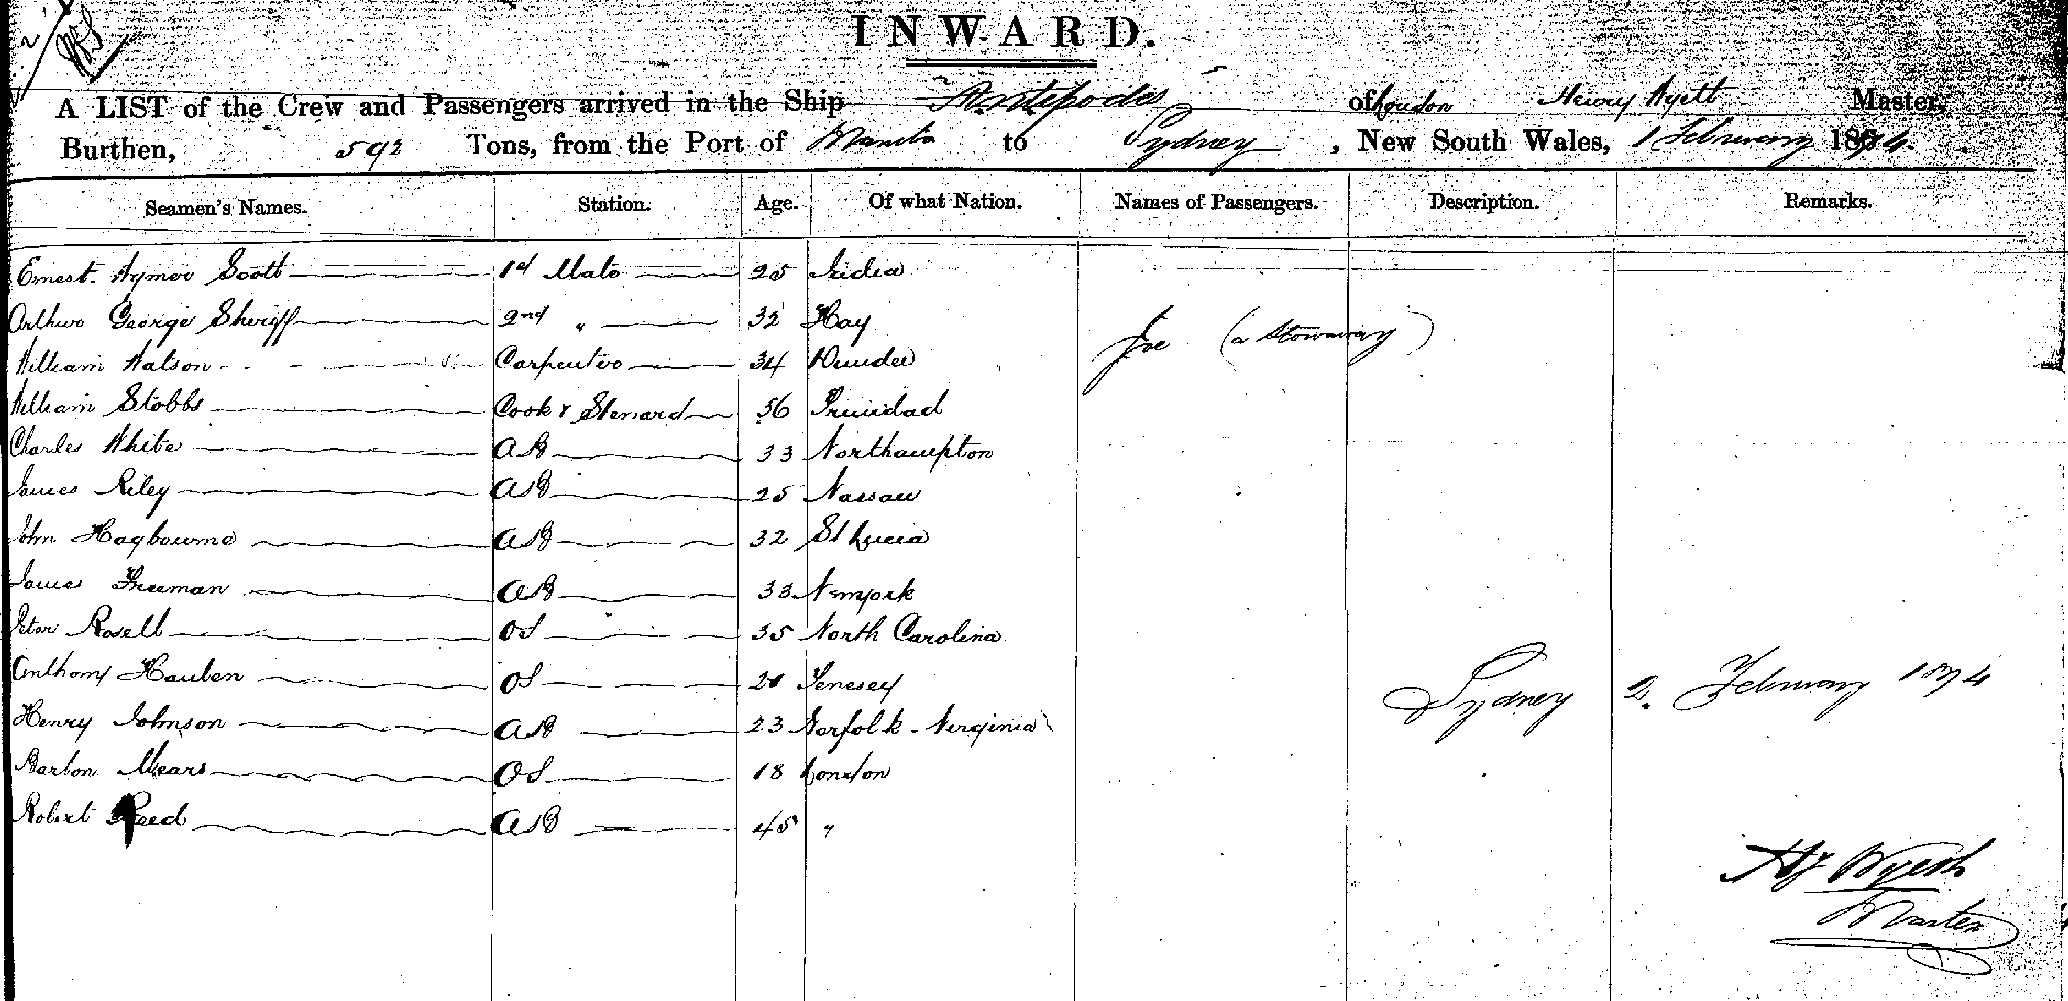 INWARD.
A LIST of the Crew and Passengers arrived in the Ship Antipodes of London Henry Master,
Burthen, 592 Tons, from the Port of Manila to Sydney, New South Wales, 1 February 1874.
Seamen's Names. Station. Age. Of what Nation. Names of Passengers. Description. Remarks.
Ernest Aymer Scott 1st Mate 25 India
Arthur George Sheriff 2nd " 32 Hay
Joe (a Stowaway)
William Watson Carpenter 34 Dundee
William Stobbs Cook & Steward 56 Trinidad
Charles White AB 33 Northampton
James Riley AB 25 Nassau
John Hagbourne AB 32 St Lucia
James Freeman AB 33 Newyork
Peter Rosell OS 35 North Carolina
Anthony Hauben OS 20 Tenesey
Sydney 2. February 1874
Henry Johnson AB 23 Norfolk - Virginia
Barton Mears OS 18 London
Robert Reed AB 45 "
Hy
Master